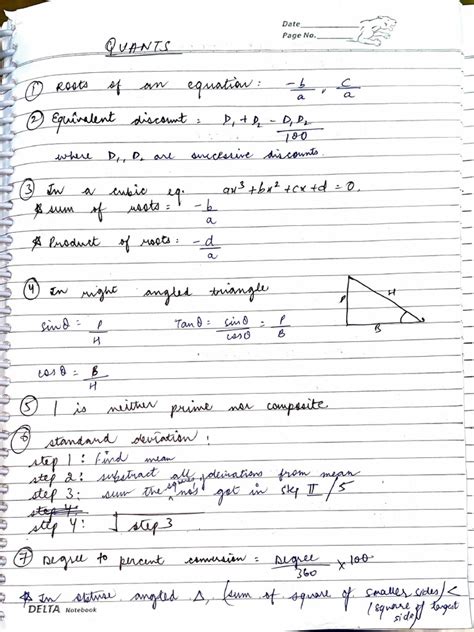 Date
Page No.
QUANTS
① Roots of an equation: -b/a, c/a
② Equivalent discount = D₁ + D₂ - D₁D₂/100
where D₁, D₂ are successive discounts.
③ In a cubic eq. ax³+bx²+cx+d = 0.
sum of roots = -b/a
Product of roots: -d/a
④ In right angled triangle
sinθ = P/H Tanθ = sinθ/cosθ = P/B
P H B
cosθ = B/H
⑤ 1 is neither prime nor composite
⑥ standard deviation:
step 1: Find mean
step 2: substract all deviations from mean
step 3: sum the squares nos got in step II / 5
step 4:
step 4: √step 3
⑦ Degree to percent conversion = Degree/360 × 100
In obtuse angled Δ, (sum of square of smaller sides) < (square of largest side)
DELTA Notebook